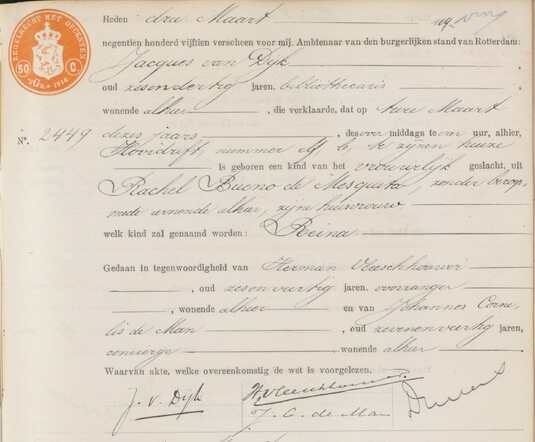 ZEGELRECHT MET OPCENTEN
50 C.
Heden drie Maart
negentien honderd vijftien verscheen voor mij, Ambtenaar van den burgerlijken stand van Rotterdam:
Jacques van Dyk
oud zesendertig jaren, bibliothecaris
wonende alhier, die verklaarde, dat op twee Maart
No. 2449 dezes jaars, des voor middags te een uur, alhier,
nummer elf b, te zijnen huize
is geboren een kind van het vrouwelijk geslacht, uit
Rachel Bueno de Mesquita, zonder beroep,
mede wonende alhier, zijne huisvrouw
welk kind zal genaamd worden: Reina
Gedaan in tegenwoordigheid van Herman Vleeschhouwer
, oud zesenveertig jaren,
, wonende alhier en van Johannes Corne-
lis de Man, oud zevenenveertig jaren,
concierge, wonende alhier
Waarvan akte, welke overeenkomstig de wet is voorgelezen.
J. v. Dyk
H. Vleeschhouwer
J. C. de Man